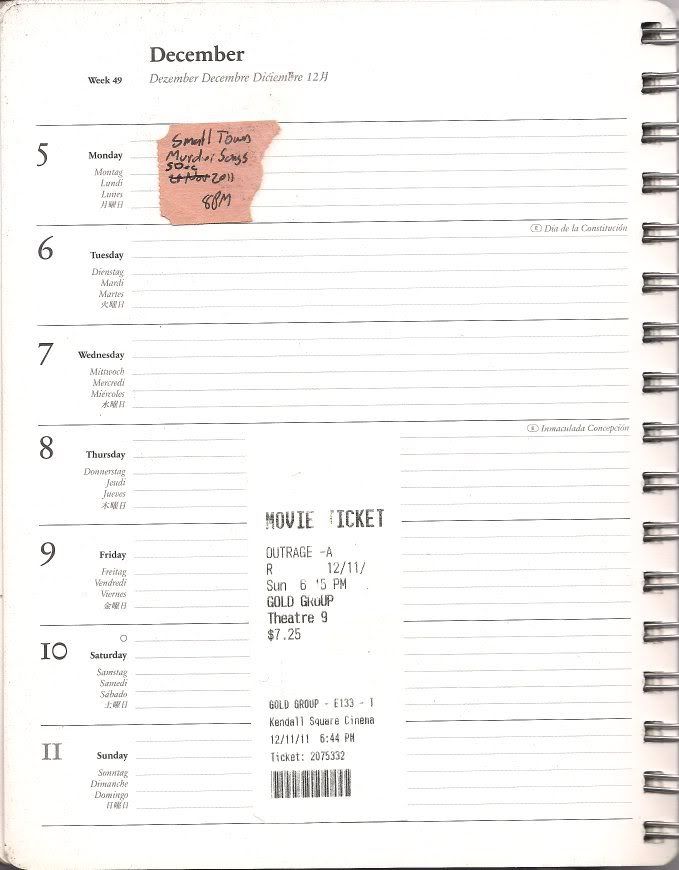 December
Week 49
Dezember Decembre Diciembre 12月
5
Monday
Montag
Lundi
Lunes
月曜日
Small Town
Murder Songs
5 Dec
2011
8PM
6
Ⓔ Día de la Constitución
Tuesday
Dienstag
Mardi
Martes
火曜日
7
Wednesday
Mittwoch
Mercredi
Miércoles
水曜日
8
Ⓔ Inmaculada Concepción
Thursday
Donnerstag
Jeudi
Jueves
木曜日
9
Friday
Freitag
Vendredi
Viernes
金曜日
10
Saturday
Samstag
Samedi
Sábado
土曜日
11
Sunday
Sonntag
Dimanche
Domingo
日曜日
MOVIE TICKET
OUTRAGE -A
R 12/11/
Sun 6 '5 PM
GOLD GROUP
Theatre 9
$7.25
GOLD GROUP - E133 - 1
Kendall Square Cinema
12/11/11 6:44 PM
Ticket: 2075332